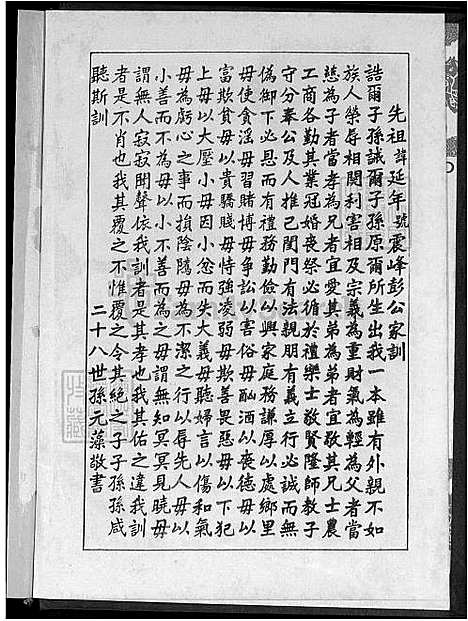 先祖諱延年號震峰彭公家訓
誥爾子孫誠爾子孫原爾所生出我一本雖有外親不如
族人榮辱相關利害相及宗義為重財氣為輕為父者當
慈為子者當孝為兄者宜愛其弟為弟者宜敬其兄士農
工商各勤其業冠婚喪祭必循於禮樂士敬賢隆師教子
守分奉公及人推己閨門有法親朋有義立行必誠而無
偽御下必恩而有禮務勤儉以興家庭務謙厚以處鄉里
毋使貪淫毋習賭博毋爭訟以害俗毋酗酒以喪德毋以
富欺貧毋以貴驕賤毋恃強凌弱毋欺善畏惡毋以下犯
上毋以大壓小毋因小忿而失大義毋聽婦言以傷和氣
毋為虧心之事而損陰隲毋為不潔之行以辱先人毋以
小善而不為毋以小不善而為之毋謂無知冥冥見曉毋
謂無人寂寂聞聲依我訓者是其孝也我其佑之違我訓
者是不肖也我其覆之不惟覆之令其絕之子子孫孫咸
聽斯訓
二十八世孫元藻敬書